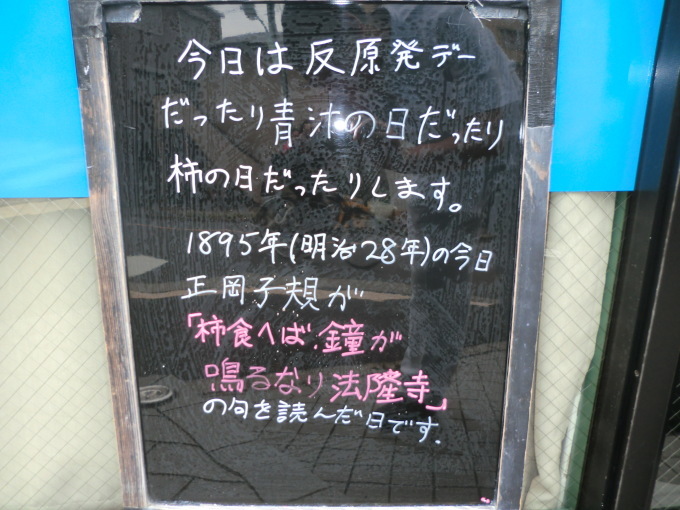 今日は反原発デー
だったり青汁の日だったり
柿の日だったりします。
1895年(明治28年)の今日
正岡子規が
「柿食へば、鐘が
鳴るなり法隆寺」
の句を読んだ日です.